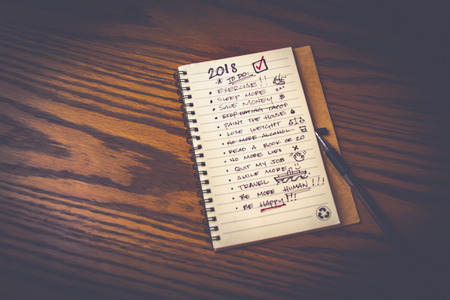 2018
* TO DO:
• EXERCISE!!
• SLEEP MORE
• SAVE MONEY $
• STOP EATING TACOS
• PAINT THE HOUSE
• LOSE WEIGHT
• NO MORE ALCOHOL
• READ A BOOK OR 20
• NO MORE LIES
• QUIT MY JOB
• SMILE MORE
• TRAVEL
• BE MORE HUMAN!!!
• BE HAPPY!!!